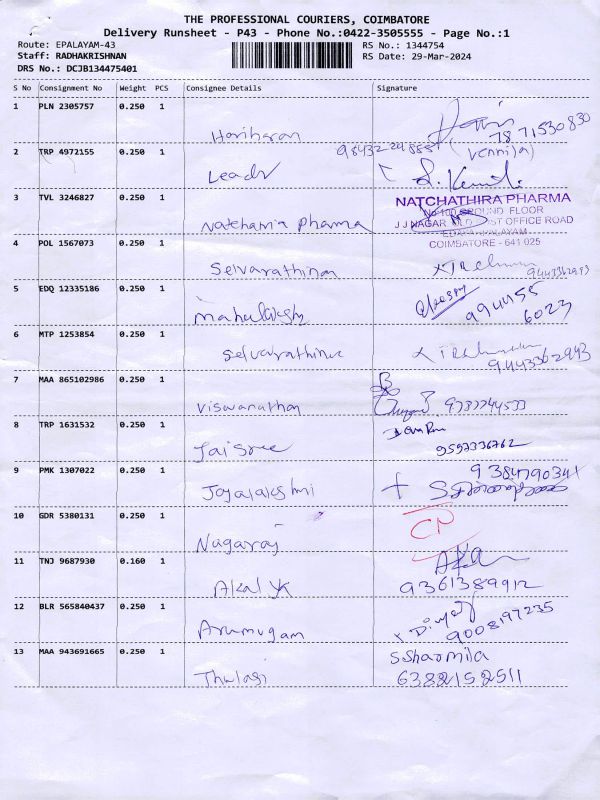 THE PROFESSIONAL COURIERS, COIMBATORE
Delivery Runsheet - P43 - Phone No.:0422-3505555 - Page No.:1
Route: EPALAYAM-43 RS No.: 1344754
Staff: RADHAKRISHNAN RS Date: 29-Mar-2024
DRS No.: DCJB134475401
S No Consignment No Weight PCS Consignee Details Signature
1 PLN 2305757 0.250 1
Hariharan 78 71530830
2 TRP 4972155 0.250 1 (Vennila)
Leadr
3 TVL 3246827 0.250 1 NATCHATHIRA PHARMA
No 100 GROUND FLOOR
Natchatira Pharma J J NAGAR POST OFFICE ROAD
COIMBATORE - 641 025
4 POL 1567073 0.250 1
Selvarathinam 9443362943
5 EDQ 12335186 0.250 1
Mahalakshmi 994455
6023
6 MTP 1253854 0.250 1
Selvarathinam 9443362943
7 MAA 865102986 0.250 1
Viswanathan
8 TRP 1631532 0.250 1
Jai Sree 9597336762
9 PMK 1307022 0.250 1 9384790341
Jayalakshmi
10 GDR 5380131 0.250 1 CP
Nagaraj
11 TNJ 9687930 0.160 1
Akal YK 9361389912
12 BLR 565840437 0.250 1
Arumugam 9008197235
13 MAA 943691665 0.250 1 S Sharmila
Thulasi 6382152511